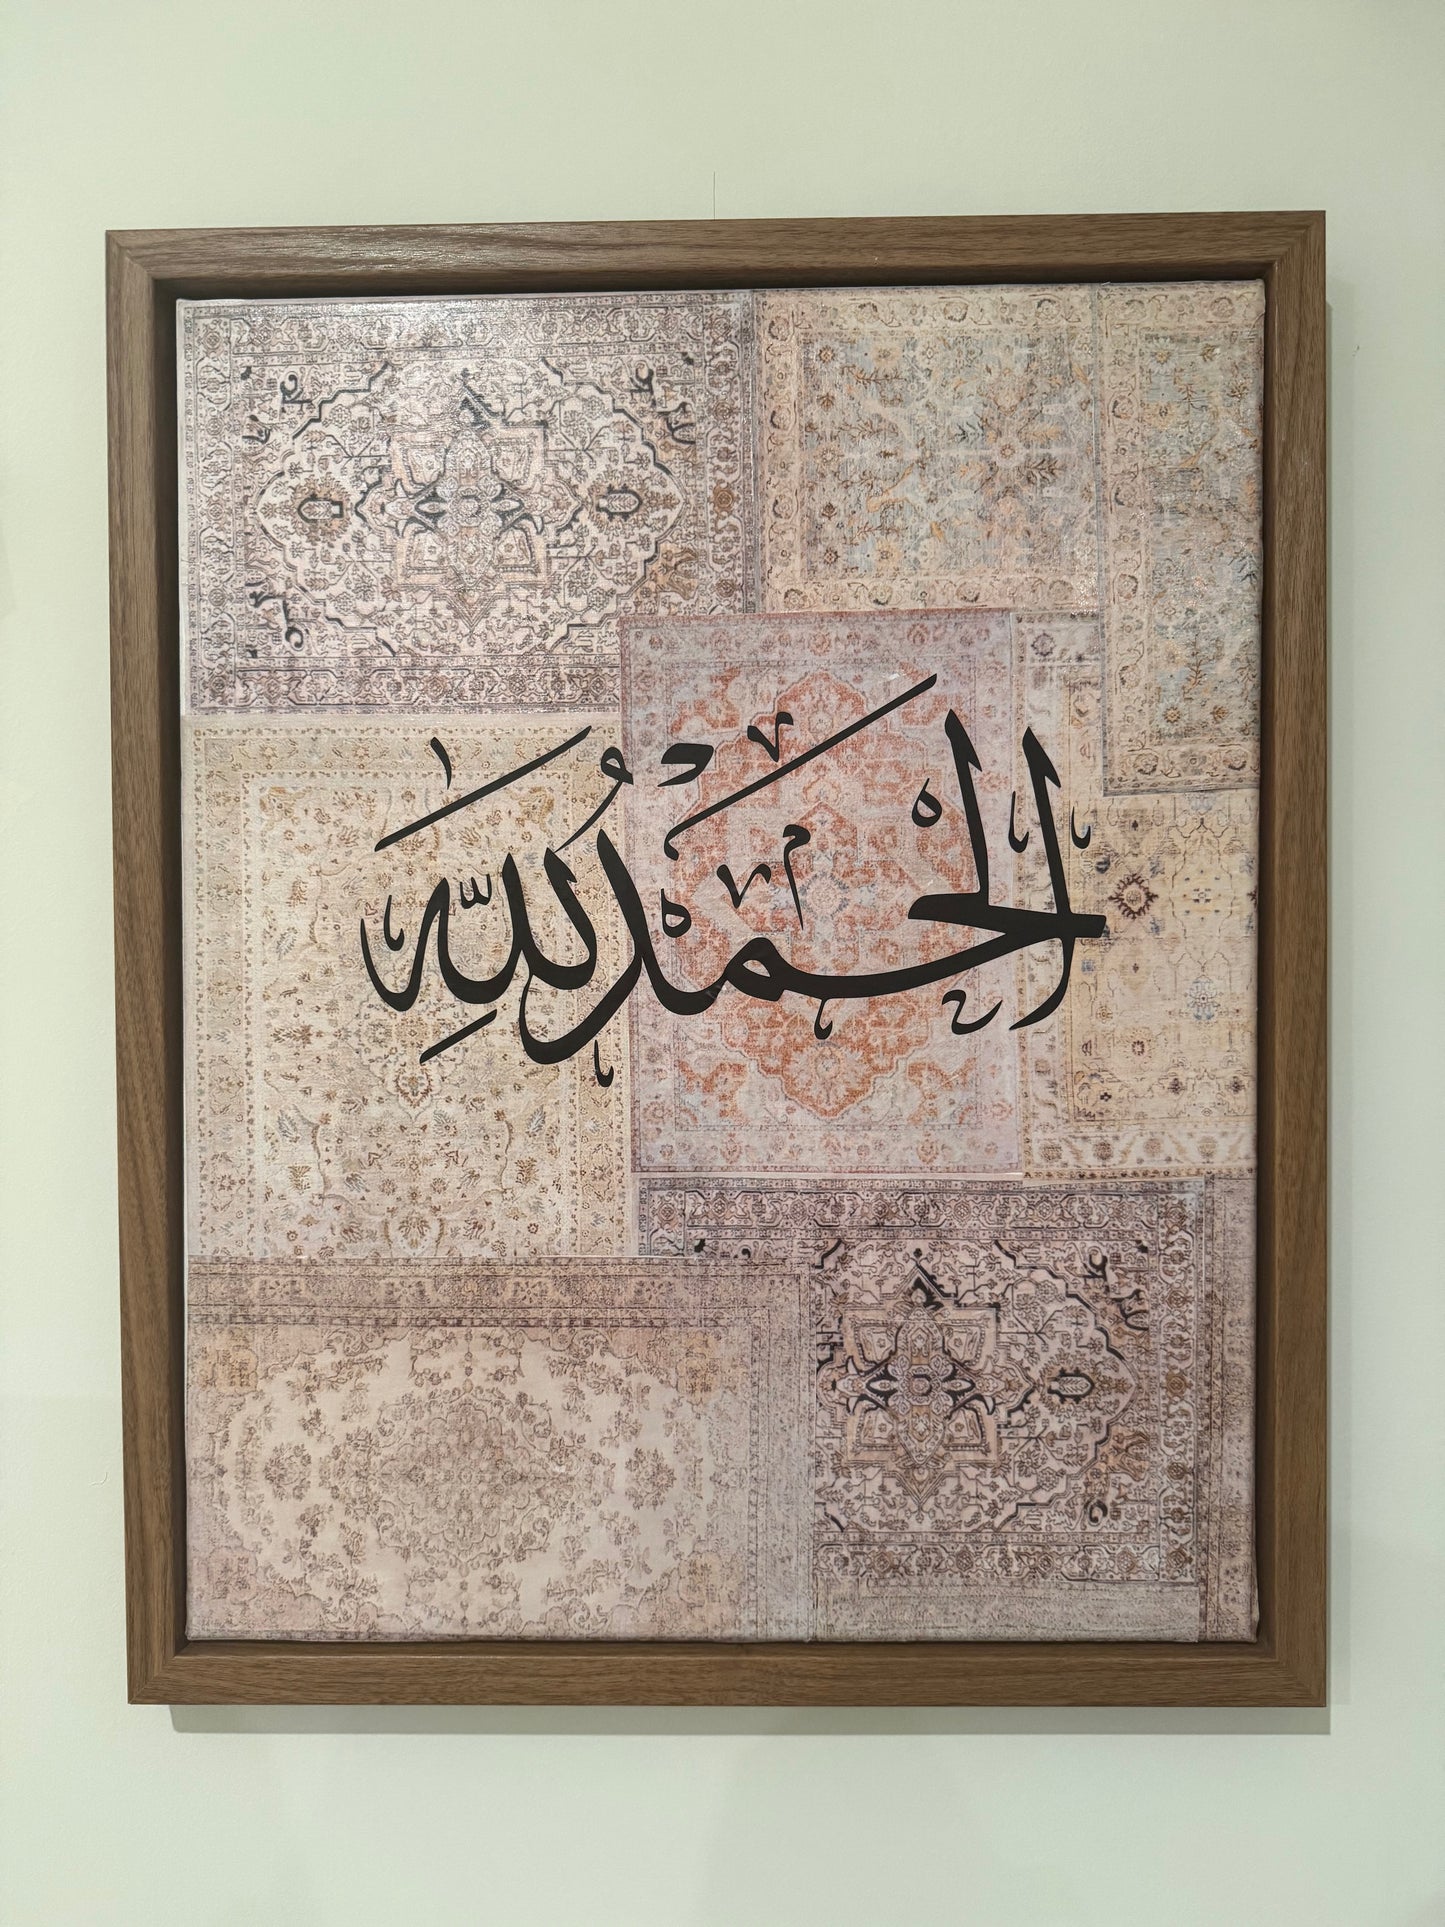 الحمدُ للهِ